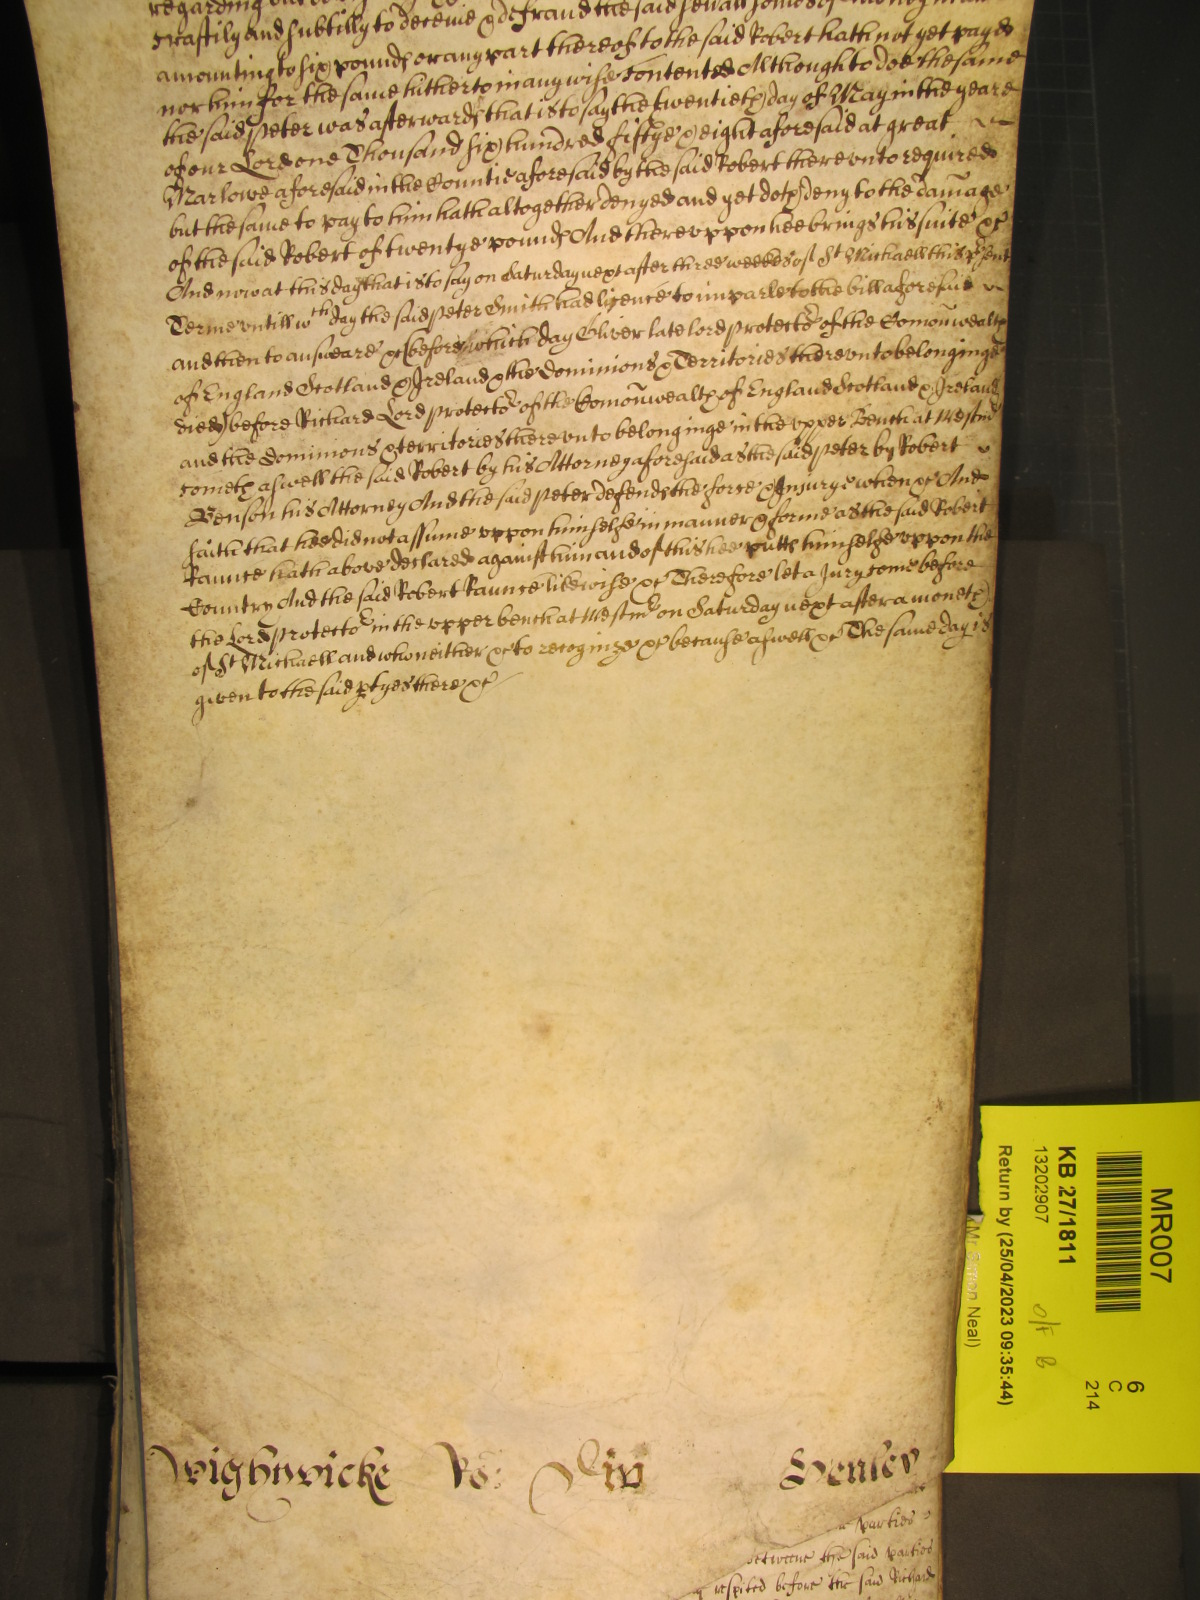 craftily and subtilly to deceive & defraud the said severall somes of money
amounting to six pounds or any part thereof to the said Robert hath not yet payed
nor him for the same hitherto in any wise contented Although to doe the same
the said Peter was afterwards that is to say the twentieth day of May in the yeare
of our Lord one Thousand six hundred fiftye & eight aforesaid at great
Marlowe aforesaid in the Countie aforesaid by the said Robert thereunto required
but the same to pay to him hath altogether denyed and yet doth deny to the damage
of the said Robert of twentye pounds And thereuppon hee brings this suite &c
And now at this day that is to say on Saturday next after three weekes of St Michaell this psent
Terme untill wch day the said Peter Smith had licence to imparle to the bill aforesaid
and then to answeare &c before which day Oliver late lord protector of the Comonwealth
of England Scotland & Ireland & the Dominions & Territories thereunto belonginge
died before Richard Lord protector of the Comonwealth of England Scotland & Ireland
and the Dominions & territories thereunto belonginge in the upper Bench at Westmr
cometh aswell the said Robert by his Attorney aforesaid as the said Peter by Robert
Benson his Attorney And the said Peter defends the force & Injury when &c And
saith that hee did not assume uppon himselfe in manner & forme as the said Robert
Raunce hath above declared against him and of this hee putts himselfe uppon the
Country And the said Robert Raunce likewise &c Therefore let a Jury come before
the Lord protector in the upper bench at Westmr on Saturday next after a moneth
of St Michaell and who neither &c to recognize &c because aswell &c The same day is
given to the said ptyes there &c
Wightwicke Ro: Liv Henley
parties
betweene the said parties
respited before the said Richard
MR007
KB 27/1811
13202907
Return by (25/04/2023 09:35:44)
6
C
214
O/F B
Neal)